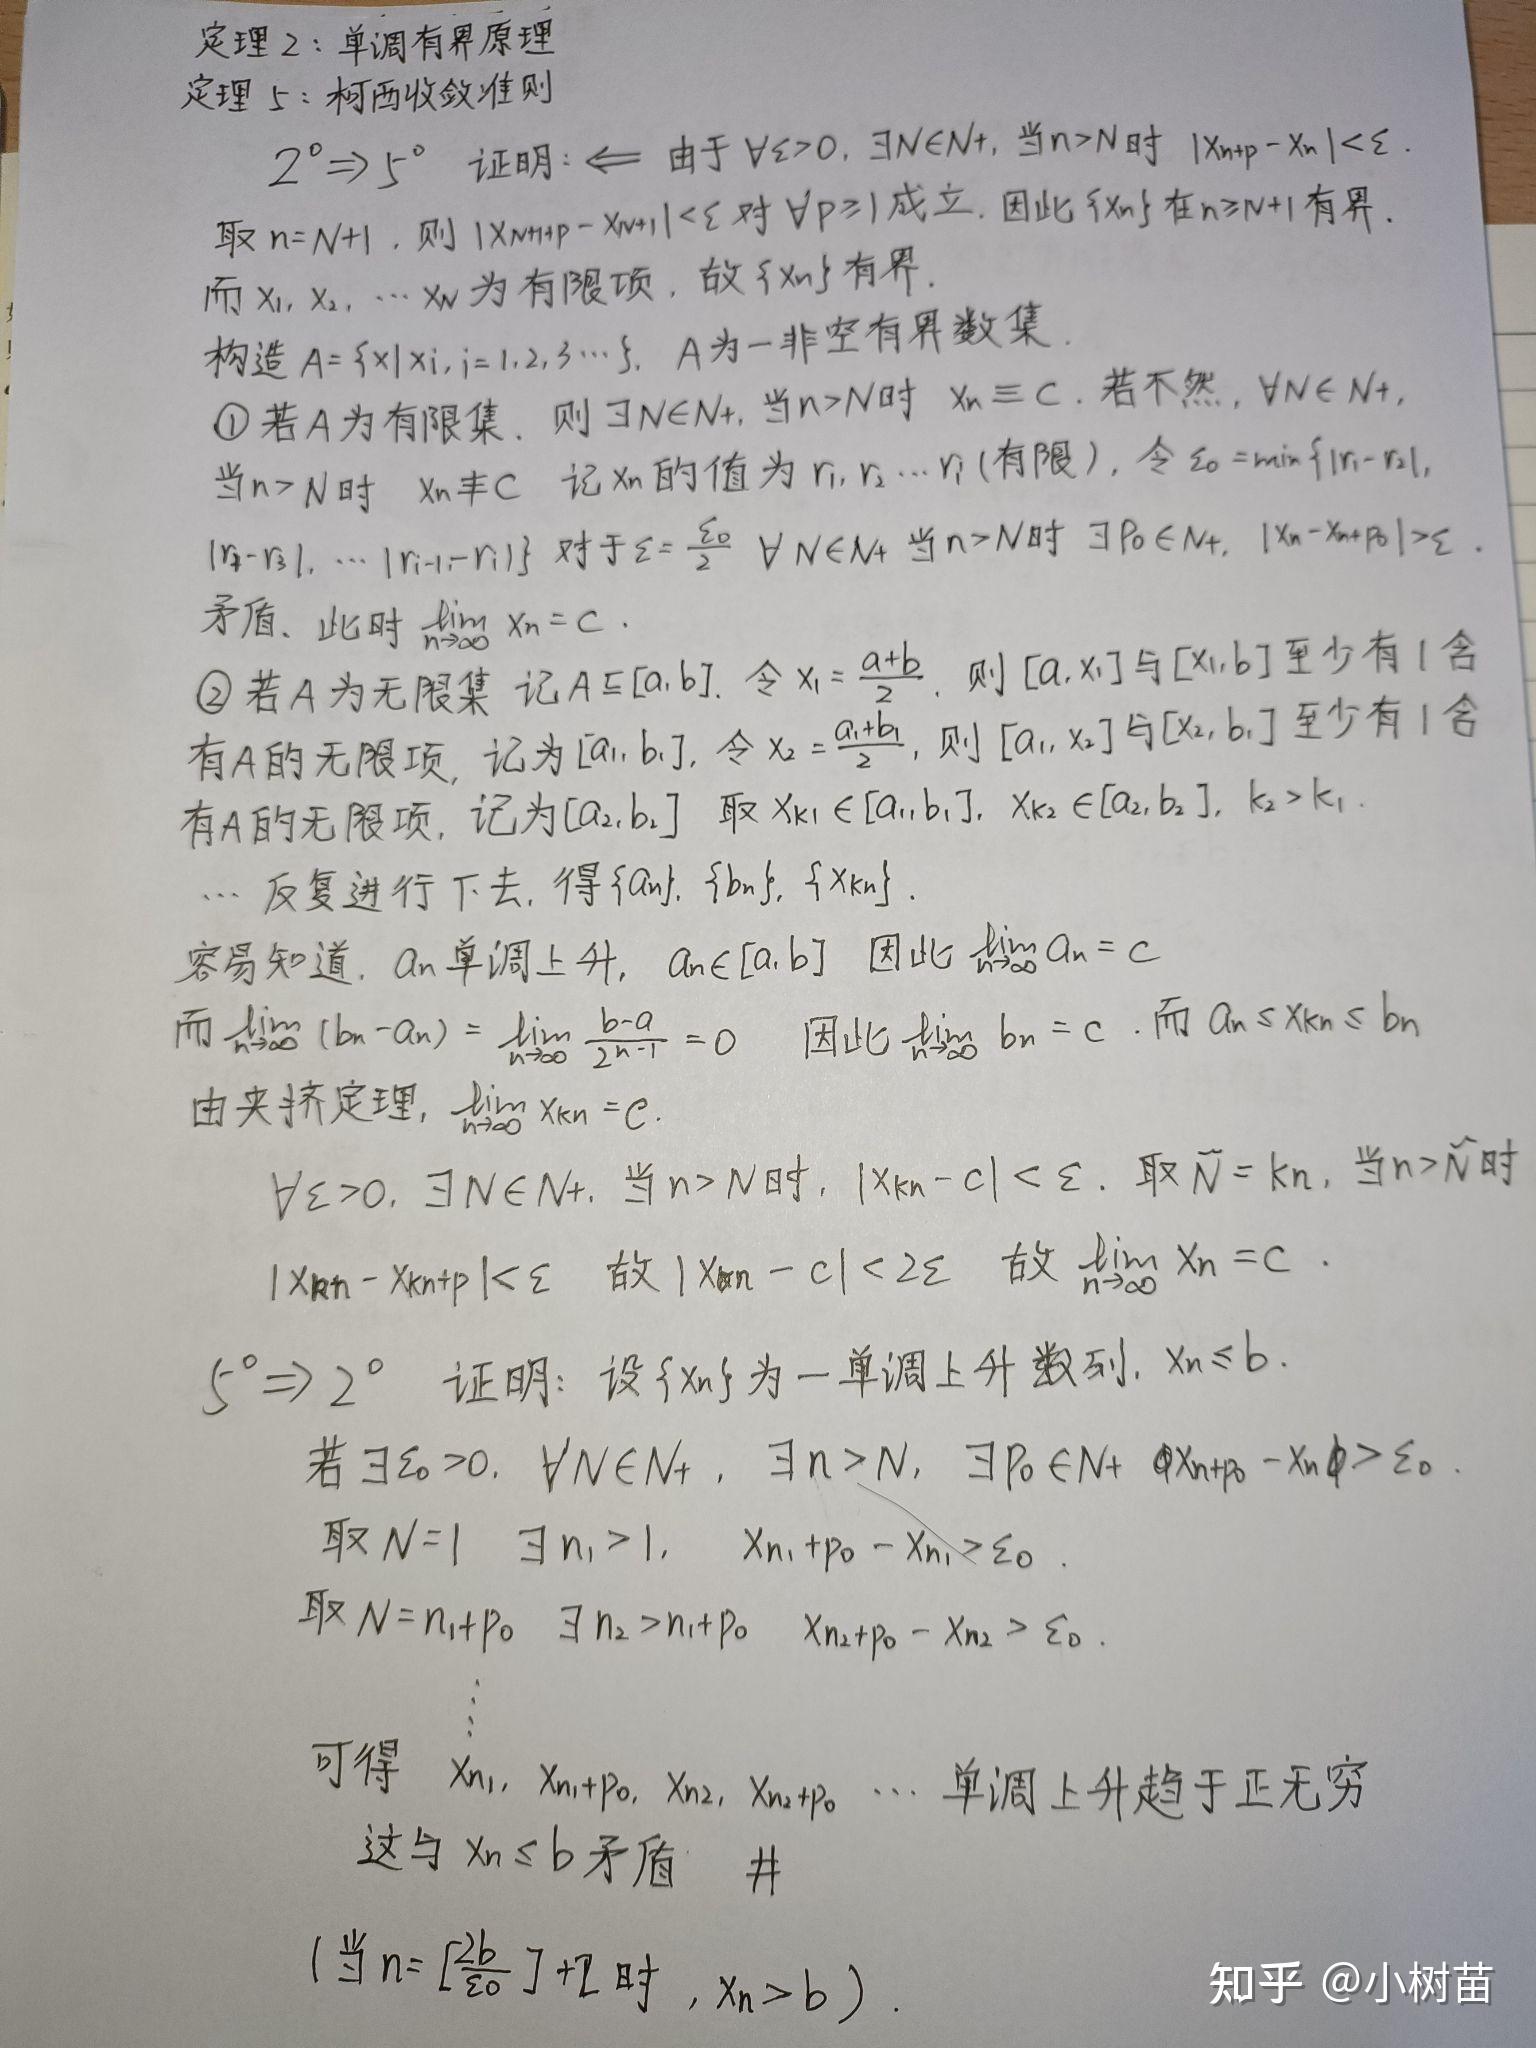 定理2：单调有界原理
定理5：柯西收敛准则
2°⇒5° 证明：⇐ 由于∀ε>0, ∃N∈N+, 当n>N时 |xn+p - xn|<ε.
取n=N+1, 则|xN+1+p - xN+1|<ε对∀p≥1成立. 因此{xn}在n≥N+1有界.
而x1, x2, …xN为有限项, 故{xn}有界.
构造A={x|xi, i=1,2,3…}, A为一非空有界数集.
①若A为有限集, 则∃N∈N+, 当n>N时 xn≡C. 若不然, ∀N∈N+,
当n>N时 xn≢C 记xn的值为r1, r2…ri(有限), 令ε0=min{|r1-r2|,
|r2-r3|, …|ri-1-ri|} 对于ε=ε0/2 ∀N∈N+ 当n>N时 ∃P0∈N+, |xn-xn+p0|>ε.
矛盾、此时 lim n→∞ xn=c.
②若A为无限集 记A⊆[a,b]. 令x1=(a+b)/2, 则[a,x1]与[x1,b]至少有1含
有A的无限项, 记为[a1,b1], 令x2=(a1+b1)/2, 则[a1,x2]与[x2,b1]至少有1含
有A的无限项, 记为[a2,b2] 取xk1∈[a1,b1], xk2∈[a2,b2], k2>k1.
…反复进行下去, 得{an}, {bn}, {xkn}.
容易知道, an单调上升, an∈[a,b] 因此 lim n→∞ an=c
而 lim n→∞ (bn-an) = lim n→∞ (b-a)/2^(n-1) =0 因此 lim n→∞ bn=c. 而an≤xkn≤bn
由夹挤定理, lim n→∞ xkn=c.
∀ε>0, ∃N∈N+, 当n>N时, |xkn-c|<ε. 取Ñ=kn, 当n>Ñ时
|xn-xkn+p|<ε 故|xn-c|<2ε 故 lim n→∞ xn=c.
5°⇒2° 证明：设{xn}为一单调上升数列, xn≤b.
若∃ε0>0, ∀N∈N+, ∃n>N, ∃P0∈N+ xn+p0-xn>ε0.
取N=1 ∃n1>1, xn1+p0-xn1>ε0.
取N=n1+p0 ∃n2>n1+p0 xn2+p0-xn2>ε0.
⋮
可得 xn1, xn1+p0, xn2, xn2+p0 …单调上升趋于正无穷
这与xn≤b矛盾 #
(当n=[2b/ε0]+2时, xn>b).
知乎 @小树苗